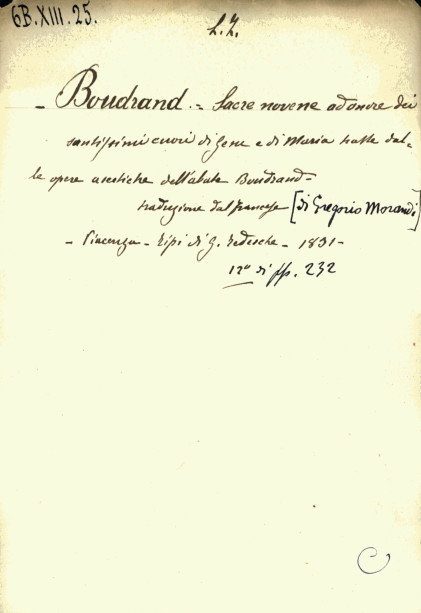 6B.XIII.25.
L.I.
- Boudrand. = Sacre novene ad onore dei
santissimi cuori di Gesu e di Maria tratte dal=
le opere ascetiche dell'abate Boudrand -
traduzione dal francese [di Gregorio Morandi]
- Piacenza - Tipi di G. Tedesche - 1831 -
12° di pp. 232